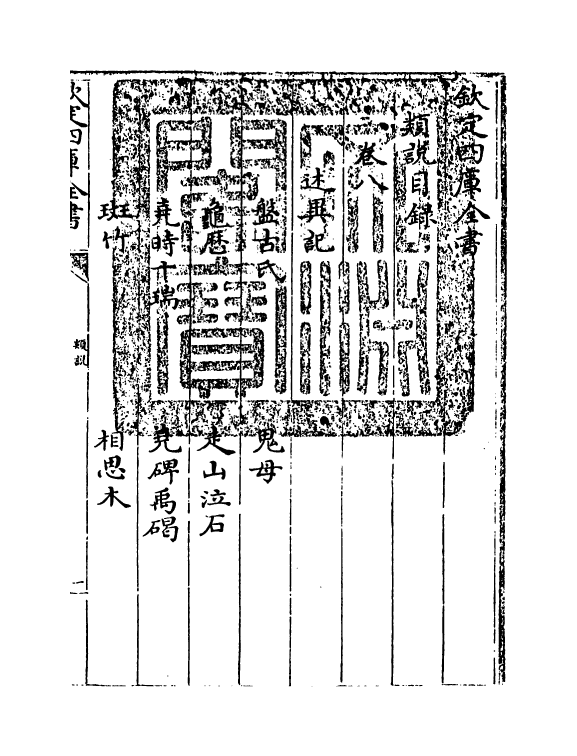 欽定四庫全書
類說目錄
卷八
述異記
盤古氏 鬼母
龜歴 走山泣石
堯時十瑞 堯碑禹碣
斑竹 相思木
欽定四庫全書 類說